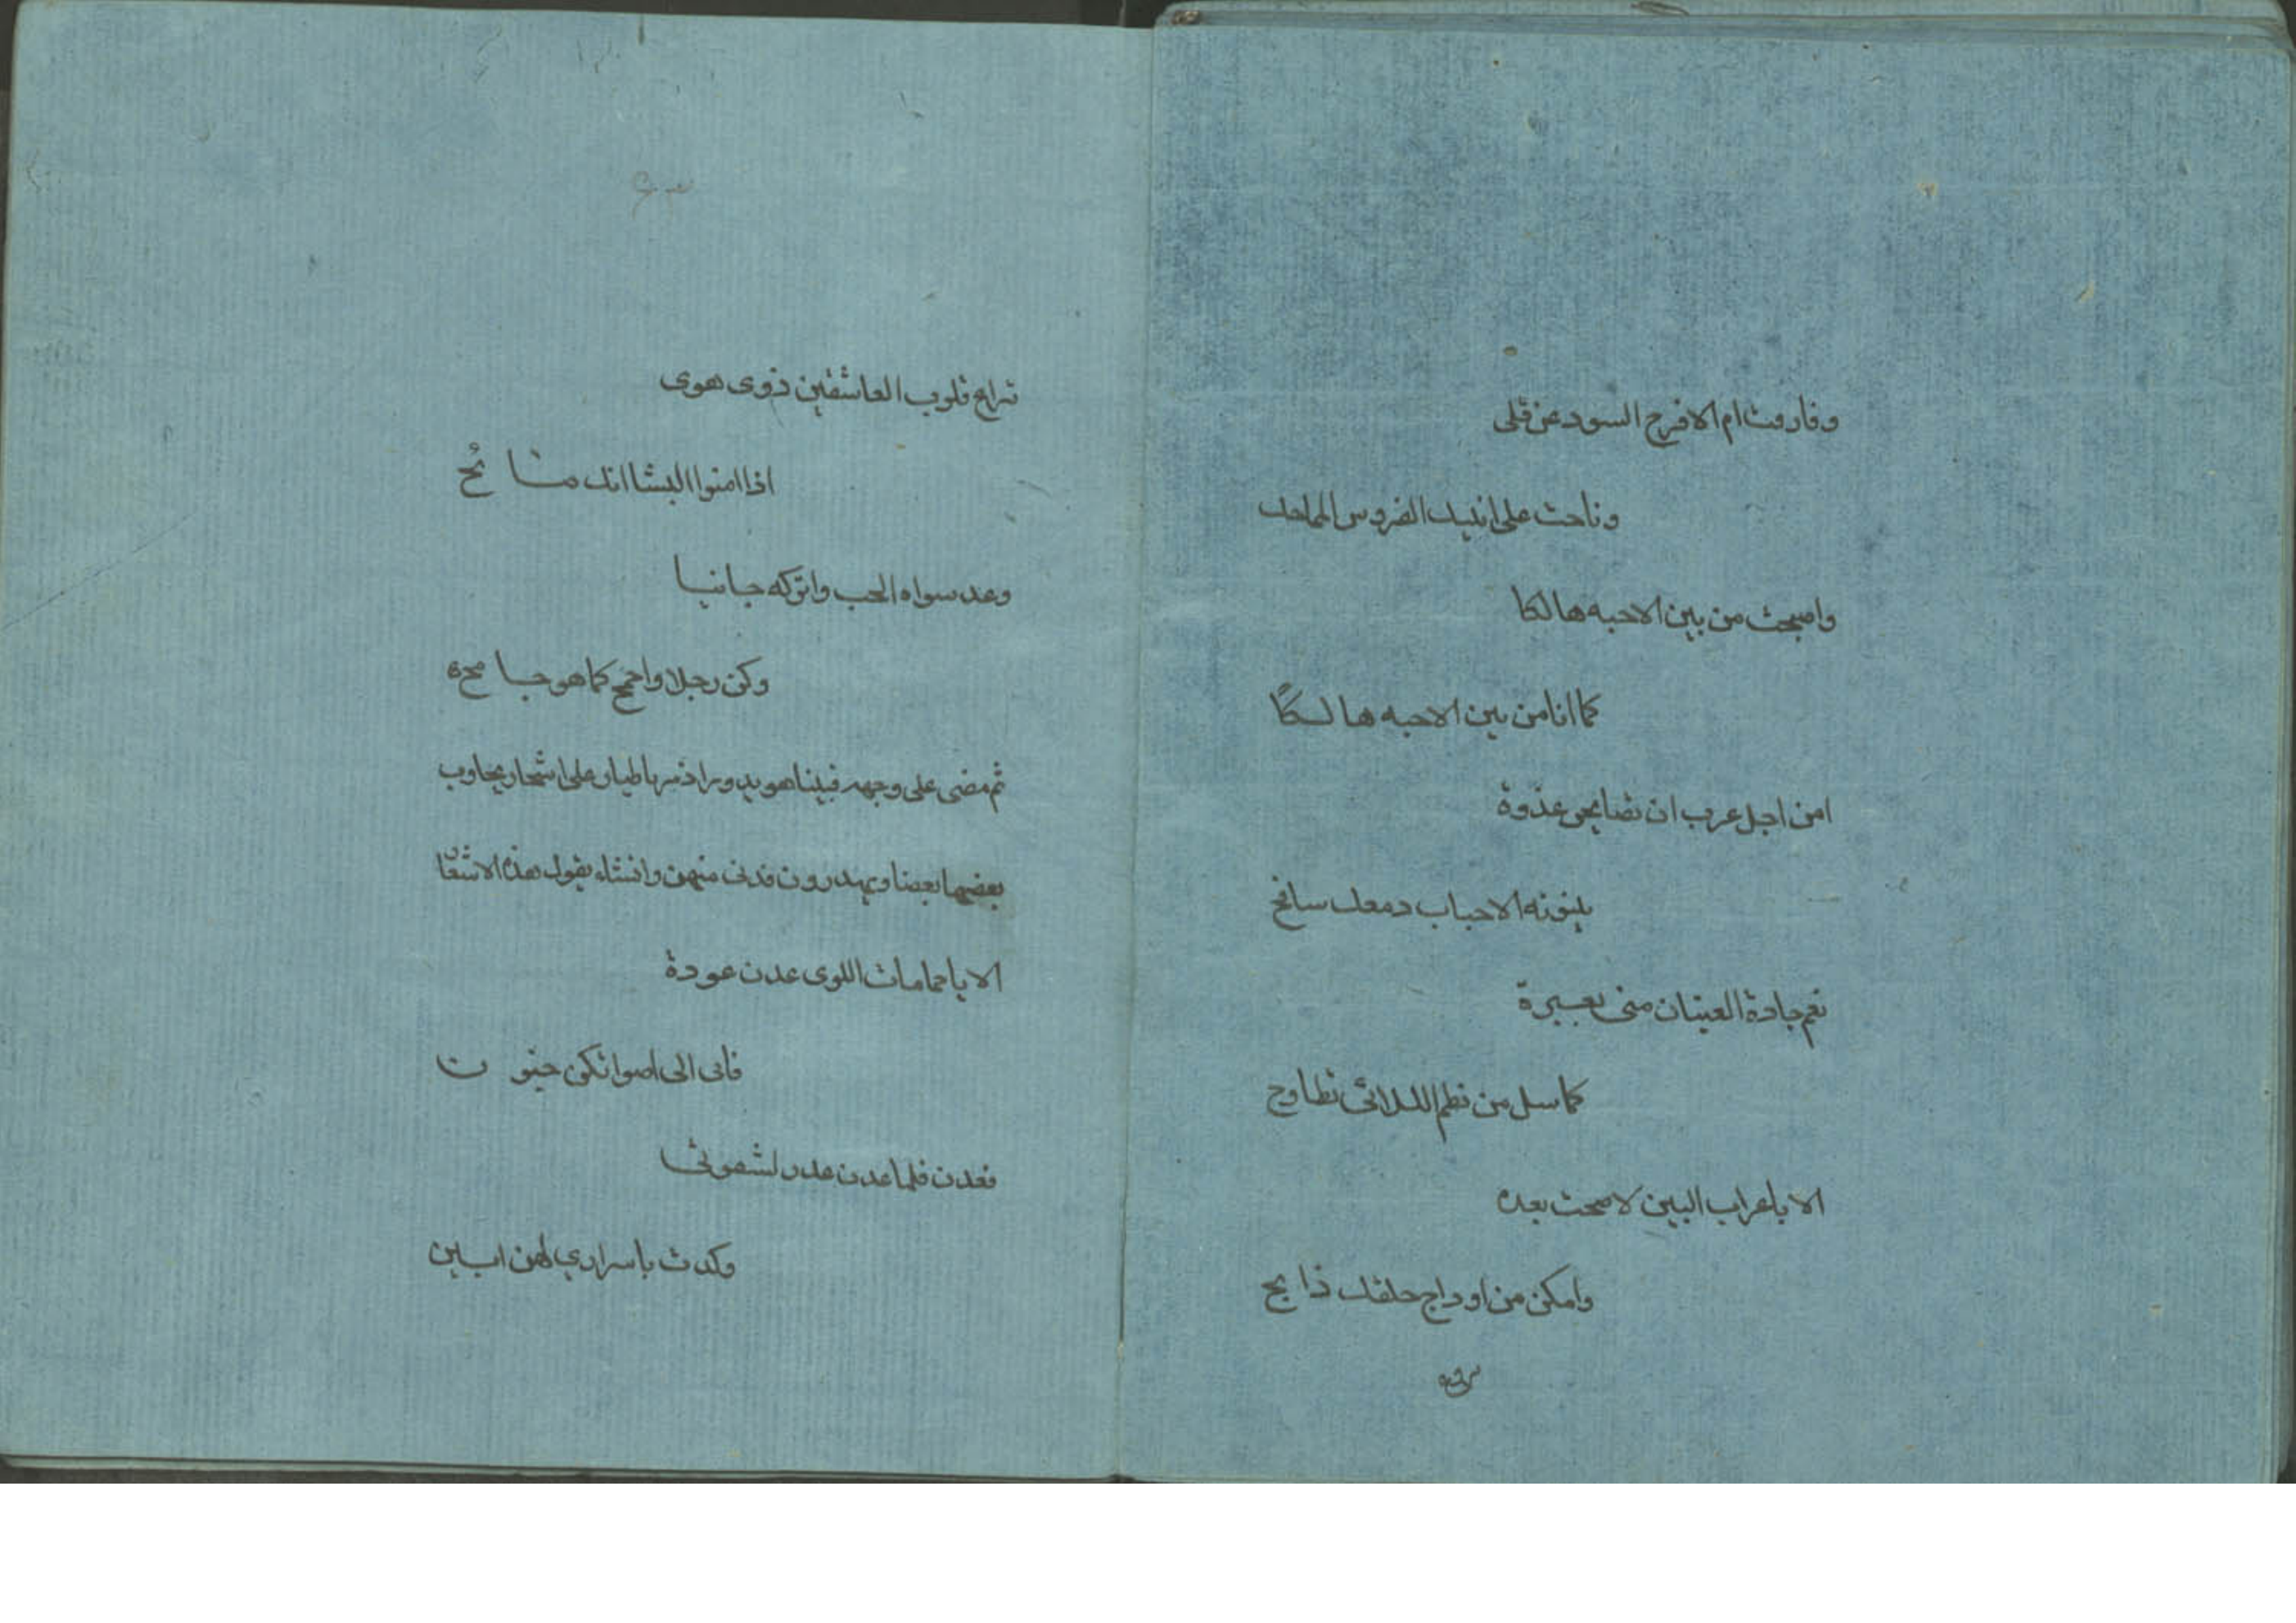 وفارقت ام الافرح السود عن قلى
وناحت على انليك الضروس الملحك
واصبحت من بين الاحبه هالكا
كما انا من بين الاحبه هالكًا
امن اجل عرب ان نضايحى عذوة
بلينونه الاحباب دمعك سانح
نعم جادة العينان منى بعبيرة
كما سل من نظم اللالائى نطاوح
الا يا عراب البين لا صحت بعده
وامكن من اوداج حلقك ذا بح
تراع قلوب العاشقين ذوى هوى
اذا امنوا انك نائح
وعد سواه الحب واتركه جانيا
وكن رجلا واجمح كما هو جا مح
ثم مضى على وجهه فبينا هو يدور اذ مر باطيار على اشجار يجاوب
بعضها بعضا ويهدرون فدنى منهن وانشاء يقول هذه الاشعار
الا يا حمامات اللوى عدن عودة
فانى الى اصواتكن حنو ن
فعدن فلما عدن عدن لشقوتى
وكدت باسراري لهن ابين